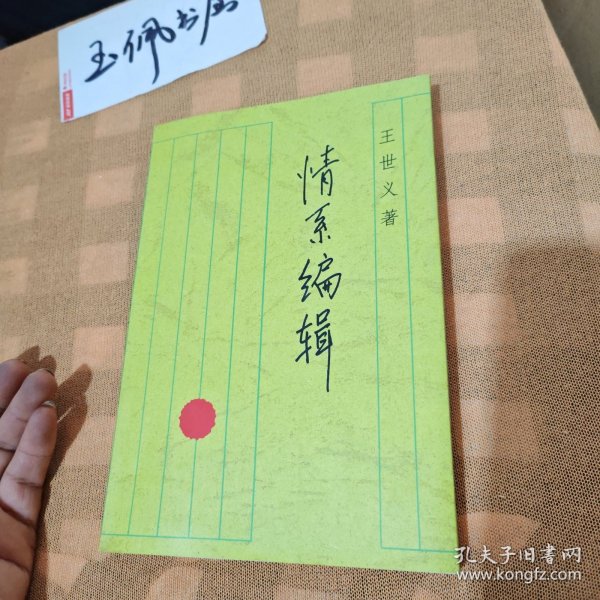 玉佩书店
王世义著
情系编辑
孔夫子旧书网
www.kongfz.com